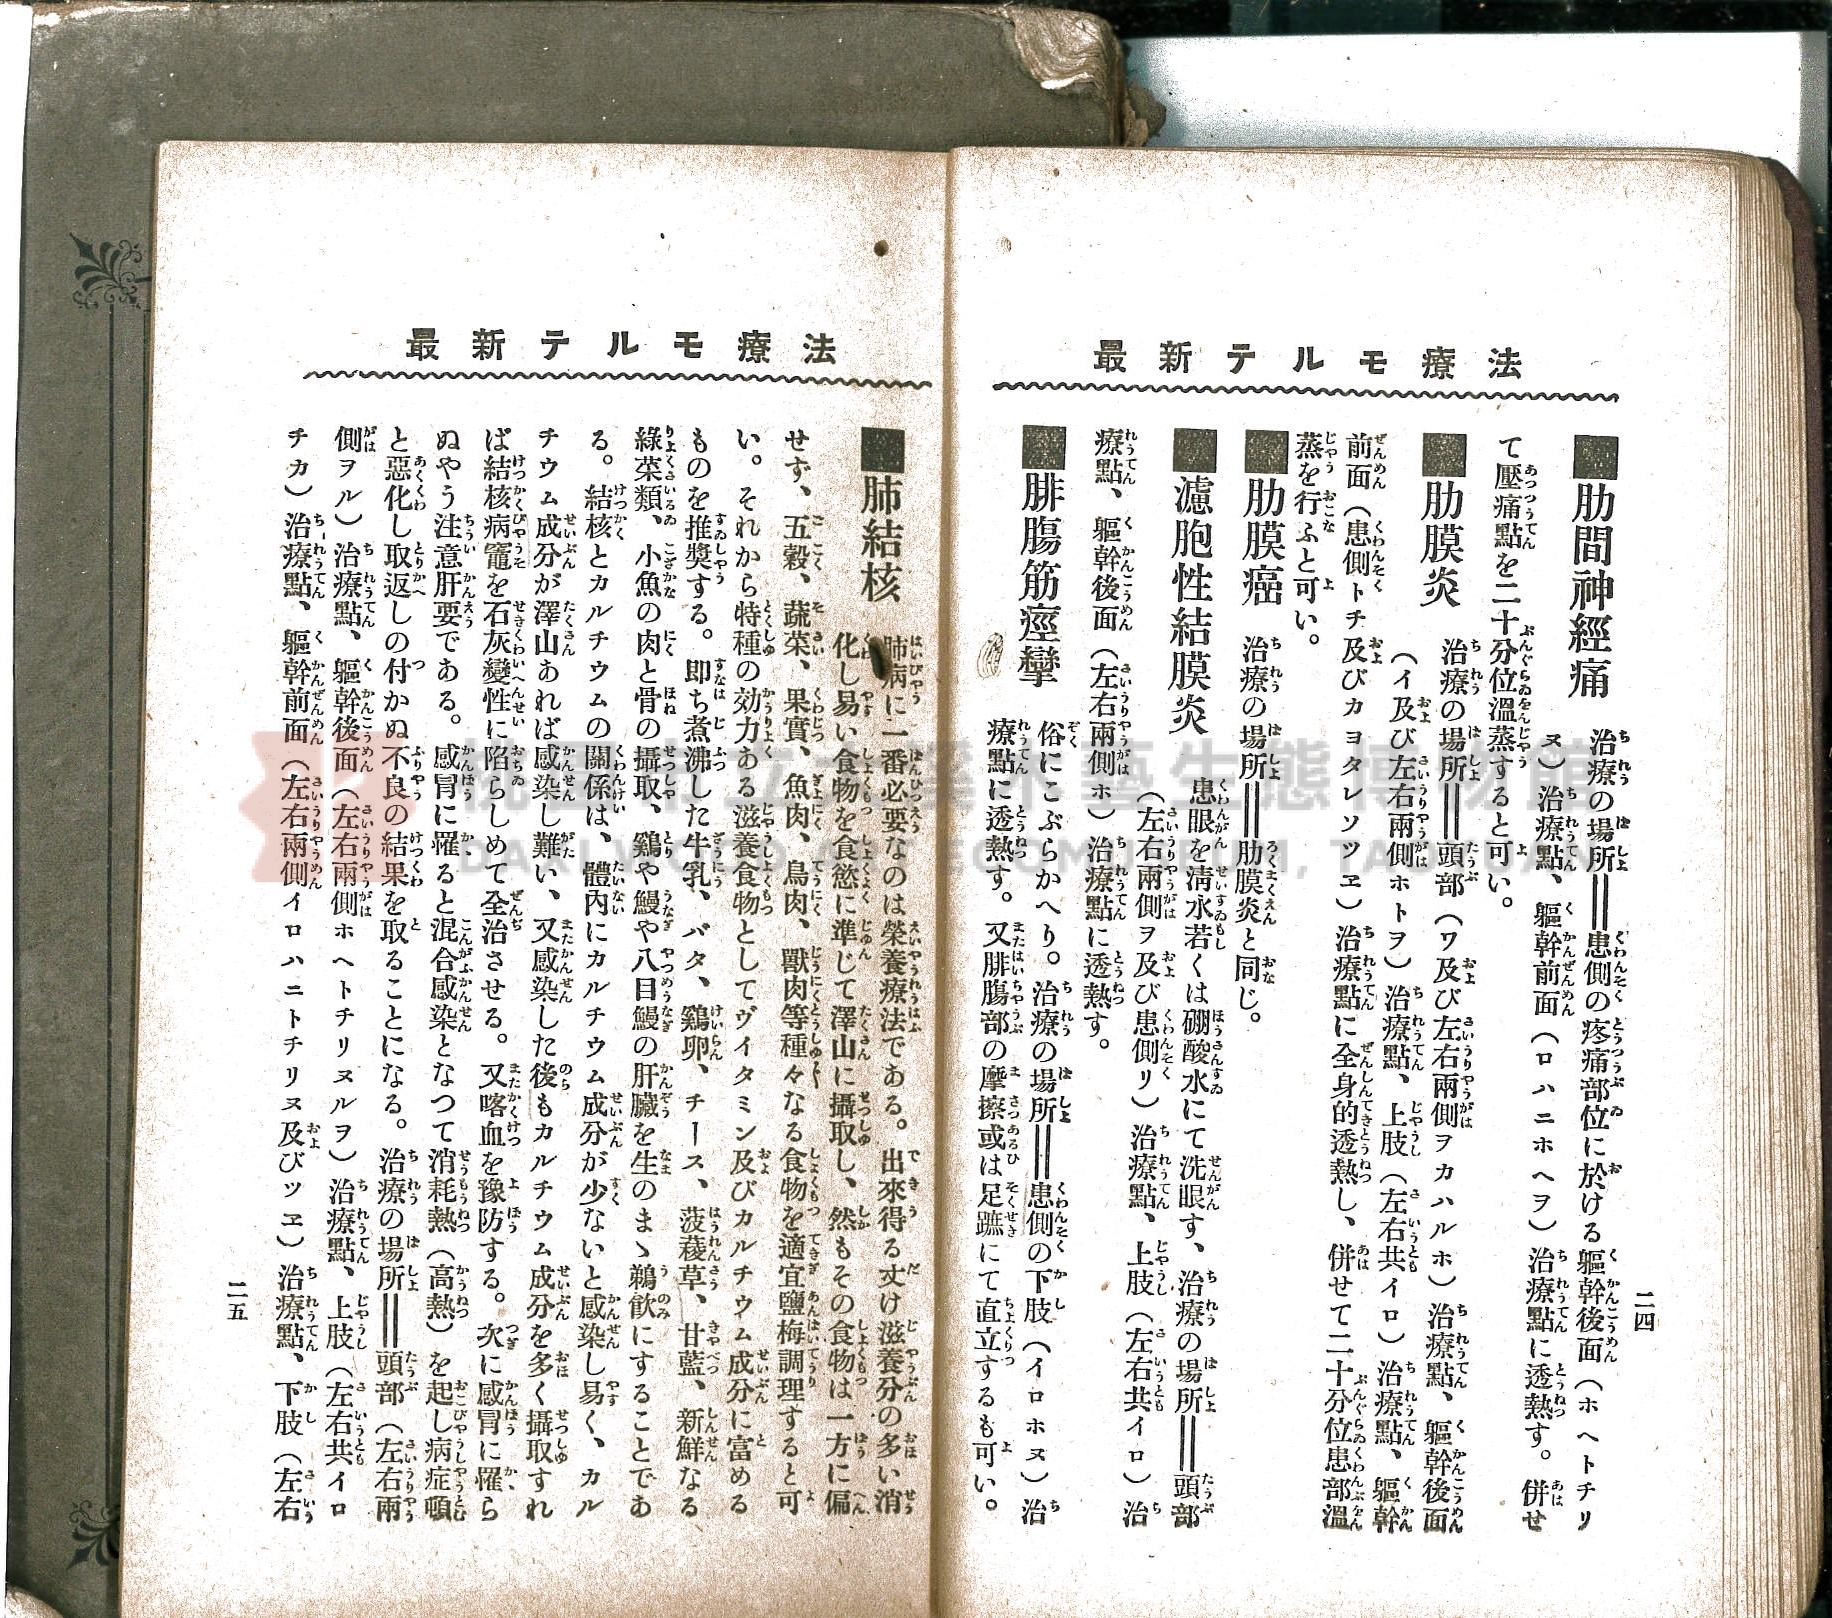 最新テルモ療法
■肋間神經痛　治療の場所＝患側の疼痛部位に於ける軀幹後面（ホヘトチリ
ヌ）治療點、軀幹前面（ロハニホヘヲ）治療點に透熱す。併せ
て壓痛點を二十分位溫蒸すると可い。
■肋膜炎　治療の場所＝頭部（ワ及び左右兩側ヲカハルホ）治療點、軀幹後面
（イ及び左右兩側ホトヲ）治療點、上肢（左右共イロ）治療點、軀幹
前面（患側トチ及びカヨタレソツヱ）治療點に全身的透熱し、併せて二十分位患部溫
蒸を行ふと可い。
■肋膜癌　治療の場所＝肋膜炎と同じ。
■濾胞性結膜炎　患眼を淸水若くは硼酸水にて洗眼す、治療の場所＝頭部
（左右兩側ヲ及び患側リ）治療點、上肢（左右共イロ）治
療點、軀幹後面（左右兩側ホ）治療點に透熱す。
■腓腸筋痙攣　俗にこぶらかへり。治療の場所＝患側の下肢（イロホヌ）治
療點に透熱す。又腓腸部の摩擦或は足蹠にて直立するも可い。
二四
最新テルモ療法
■肺結核　肺病に一番必要なのは榮養療法である。出來得る丈け滋養分の多い消
化し易い食物を食慾に準じて澤山に攝取し、然もその食物は一方に偏
せず、五穀、蔬菜、果實、魚肉、鳥肉、獸肉等種々なる食物を適宜鹽梅調理すると可
い。それから特種の効力ある滋養食物としてヴイタミン及びカルチウム成分に富める
ものを推奬する。即ち煮沸した牛乳、バタ、鷄卵、チース、菠薐草、甘藍、新鮮なる
綠菜類、小魚の肉と骨の攝取、鷄や鰻や八目鰻の肝臟を生のまゝ鵜飮にすることであ
る。結核とカルチウムの關係は、體內にカルチウム成分が少ないと感染し易く、カル
チウム成分が澤山あれば感染し難い、又感染した後もカルチウム成分を多く攝取すれ
ば結核病竈を石灰變性に陷らしめて全治させる。又喀血を豫防する。次に感冒に罹ら
ぬやう注意肝要である。感冒に罹ると混合感染となつて消耗熱（高熱）を起し病症頓
と惡化し取返しの付かぬ不良の結果を取ることになる。治療の場所＝頭部（左右兩
側ヲル）治療點、軀幹後面（左右兩側ホヘトチリヌルヲ）治療點、上肢（左右共イロ
チカ）治療點、軀幹前面（左右兩側イロハニトチリヌ及びツヱ）治療點、下肢（左右
二五
桃園市立大溪木藝生態博物館
DAXI WOOD ART ECOMUSEUM, TAOYUAN